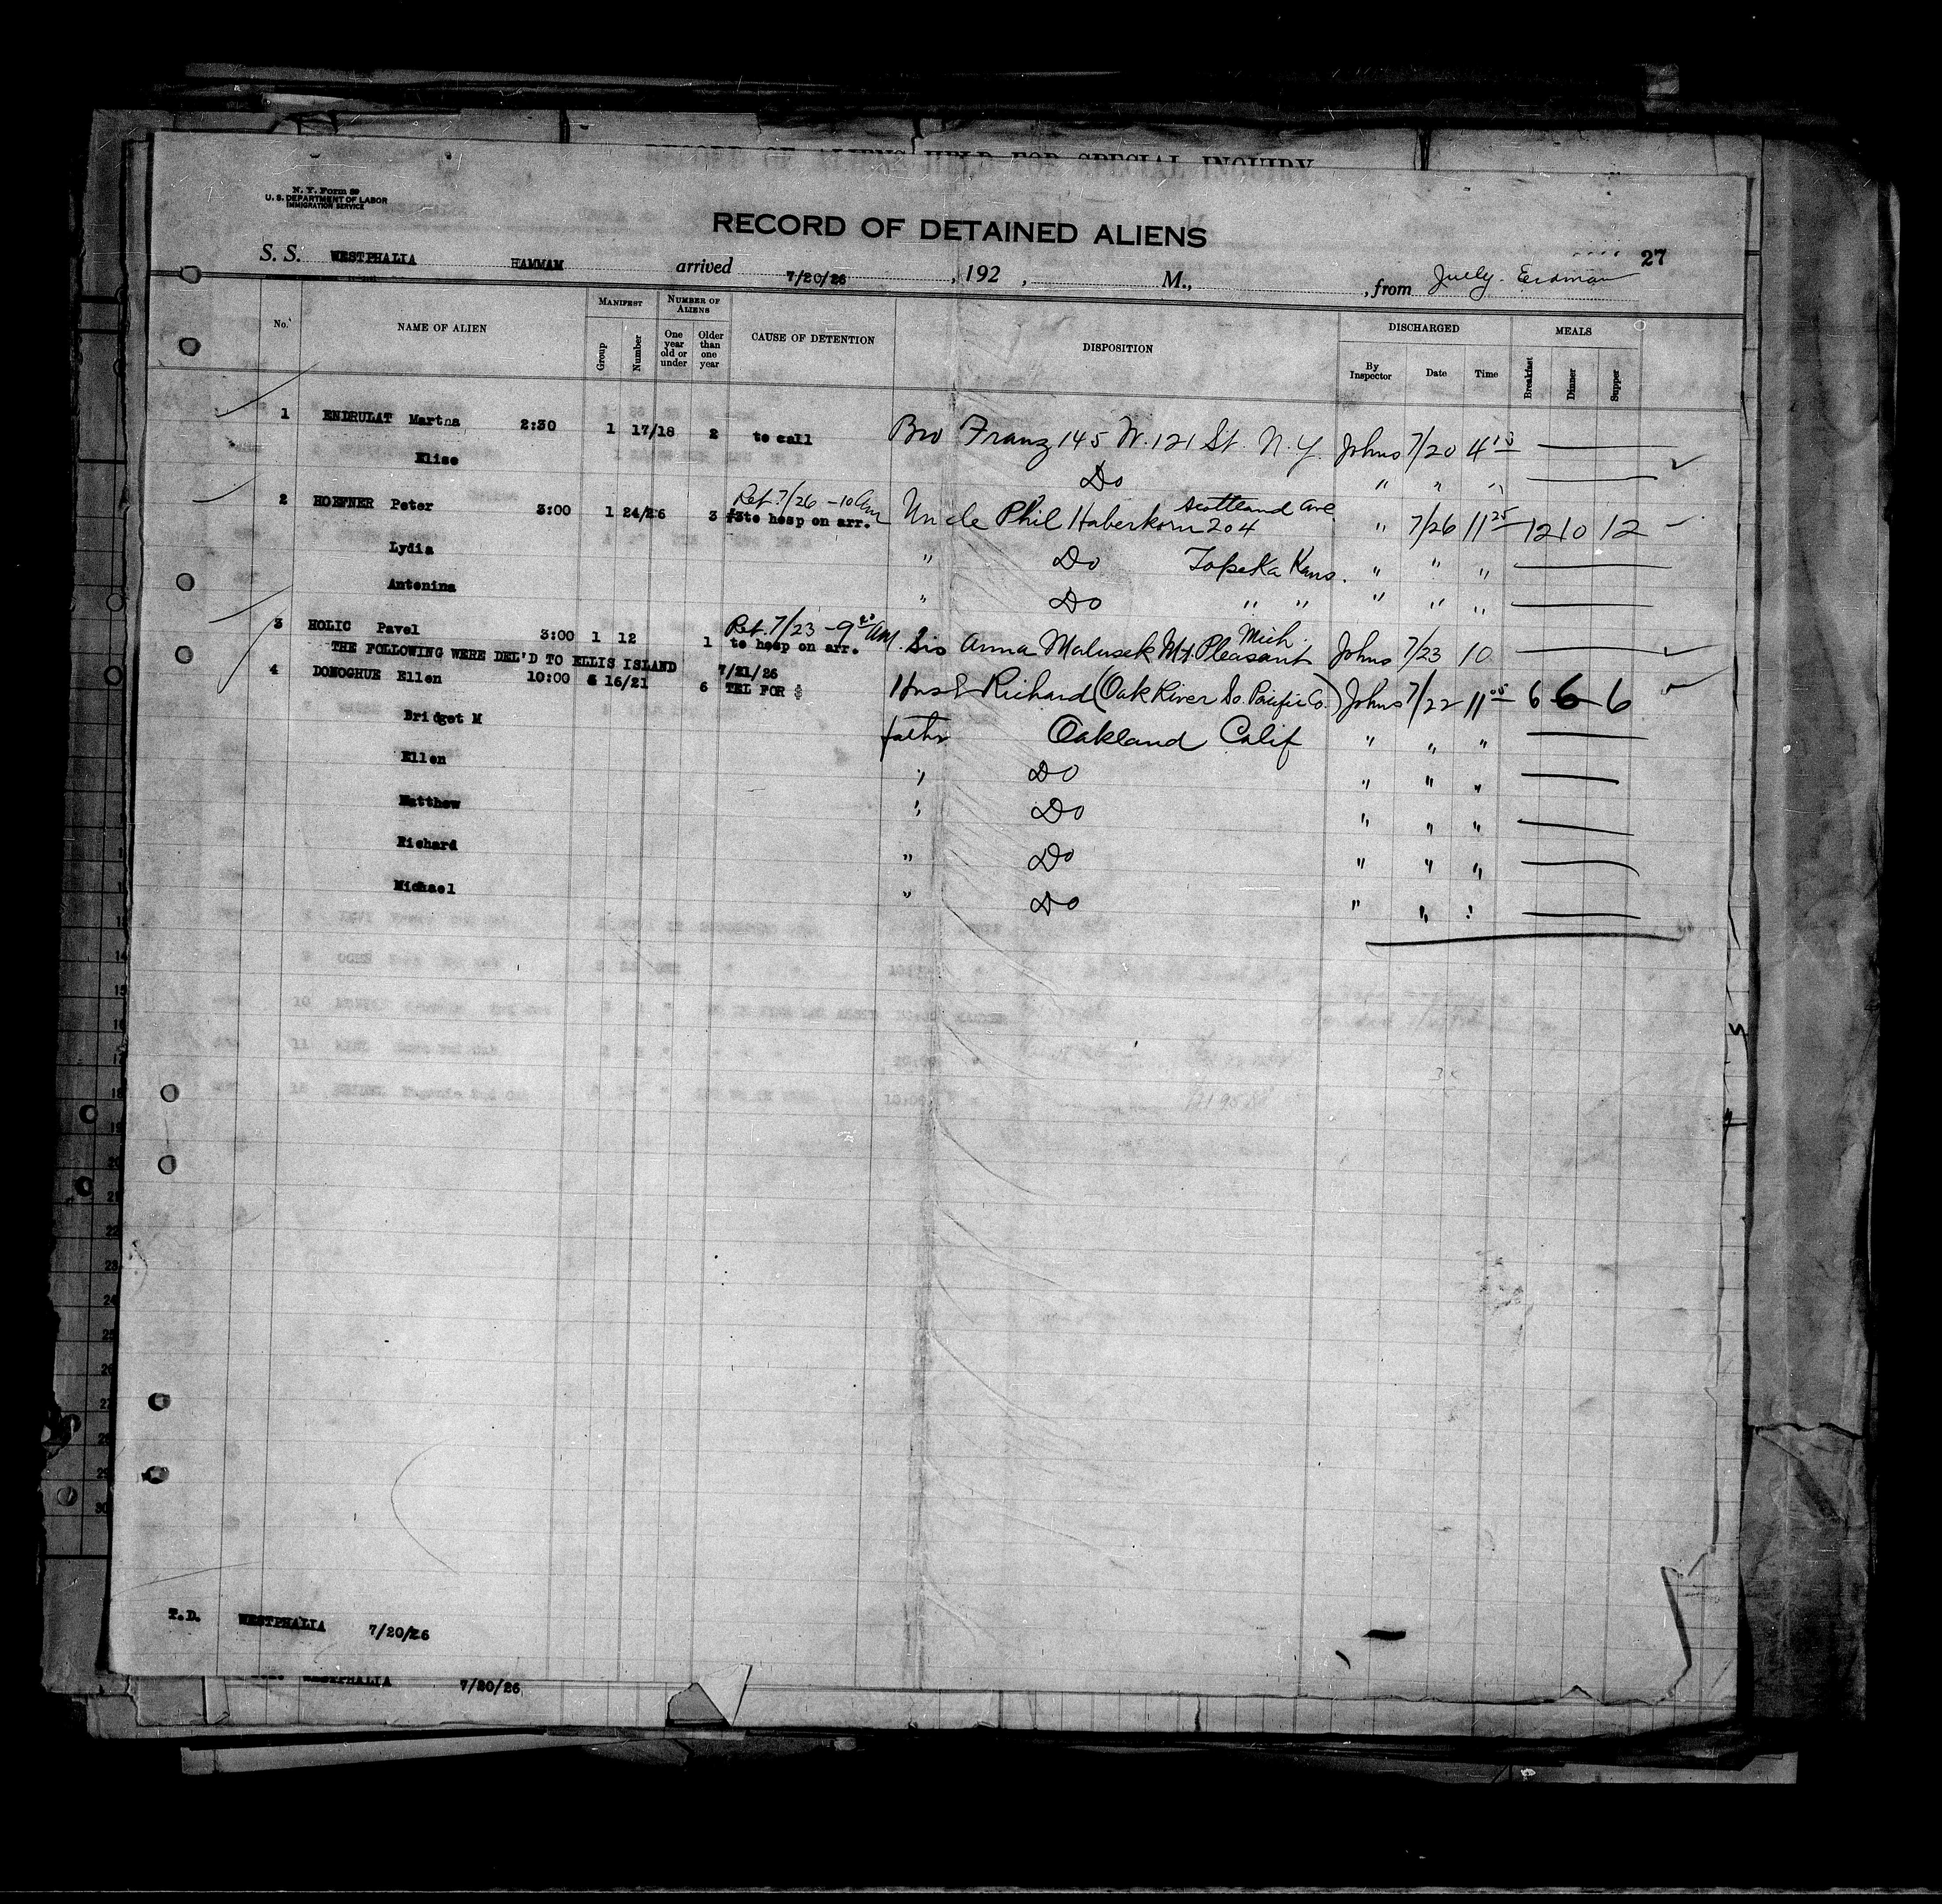 RECORD OF ALIENS HELD FOR SPECIAL INQUIRY
N. Y. Form 89
U. S. DEPARTMENT OF LABOR
IMMIGRATION SERVICE
RECORD OF DETAINED ALIENS
27
S. S. WESTPHALIA HAMMAM arrived 7/20/26, 192 , M., , from Erdman
No. NAME OF ALIEN MANIFEST Group Number NUMBER OF ALIENS One year old or under Older than one year CAUSE OF DETENTION DISPOSITION DISCHARGED By Inspector Date Time MEALS Breakfast Dinner Supper
1 ENDRULAT Martha 2:30 1 17/18 2 to call Bro Franz 145 W. 121 St. N. Y. Johns 7/20 4 15
Elise Do " " "
2 HOEFNER Peter 3:00 1 24/26 3 Ret. 7/26 - 10 am to hosp on arr. Uncle Phil Haberkorn 204 Scottland Ave " 7/26 11 25 12 10 12
Lydia " Do Topeka Kans. " " "
Antonina " Do " " " " "
3 HOLIC Pavel 3:00 1 12 1 Ret. 7/23 - 9 AM. to hosp on arr. Sis Anna Malusek Mt. Pleasant Mich. Johns 7/23 10
THE FOLLOWING WERE DEL'D TO ELLIS ISLAND 7/21/26
4 DONOGHUE Ellen 10:00 16/21 6 TEL FOR $ Husb Richard (Oak River So. Pacific Co.) Johns 7/22 11 05 6 6 6
Bridget M father Oakland Calif " " "
Ellen " Do " " "
Matthew " Do " " "
Richard " Do " " "
Michael " Do " " "
T.D. WESTPHALIA 7/20/26
WESTPHALIA 7/20/26